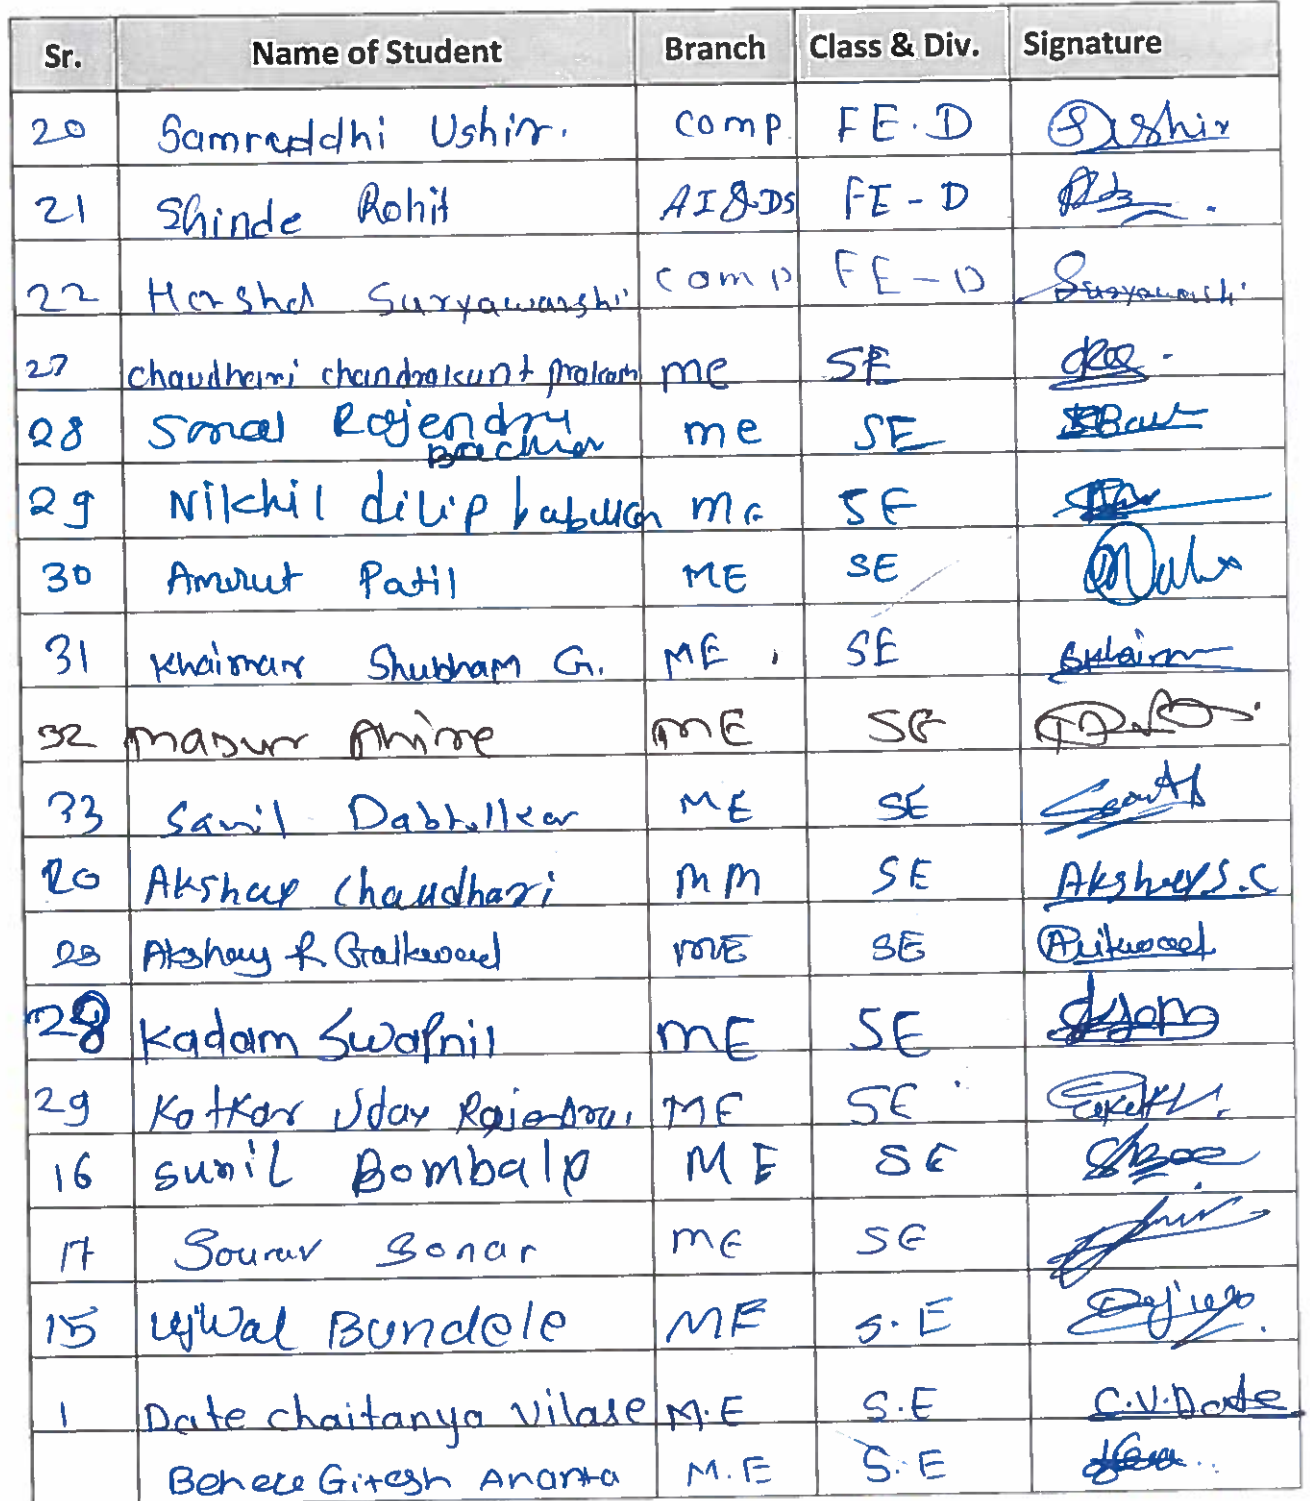 Sr. Name of Student Branch Class & Div. Signature
20 Samruddhi Ushir. Comp FE.D Ushir
21 Shinde Rohit AI&DS FE-D
22 Harshal Suryawanshi Comp FE-D Suryawanshi
27 Chaudhari Chandrakant Prakash me SE
28 Rajendra me SE
29 Nikhil dilip ME SE
30 Amrut Patil ME SE
31 Khairnar Shubham G. ME SE
32 ME SE
33 Sanil ME SE
20 Akshay Chaudhari MM SE Akshay S.C
23 Akshay R Gaikwad ME SE
28 Kadam Swapnil ME SE
29 Kotkar Uday Rajendra ME SE
16 sunil Bombale ME SE
17 Sourav Sonar ME SE
15 Ujwal Bundele ME S.E
1 Date chaitanya Vilas M.E S.E C.V.Date
Gitesh Ananta M.E S.E